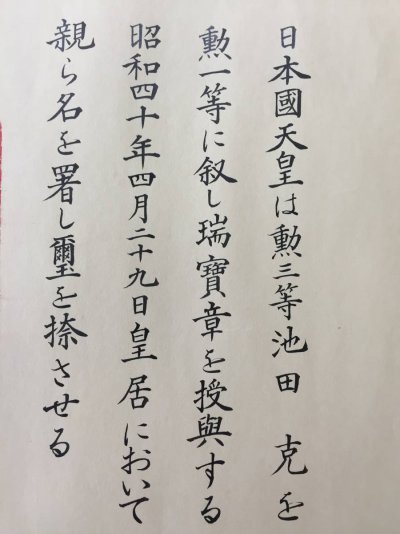 日本國天皇は勲三等池田 克を
勲一等に叙し瑞寶章を授與する
昭和四十年四月二十九日皇居において
親ら名を署し璽を捺させる